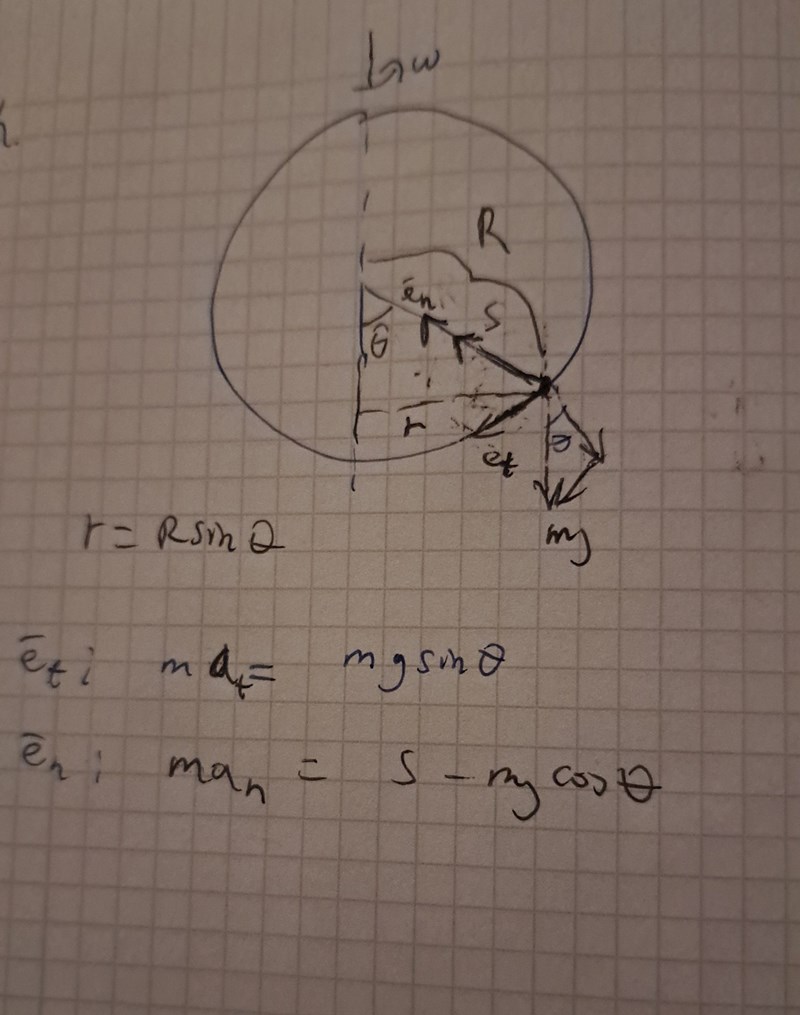 ω
R
ēn
S
θ
r
et
θ
mg
r = R sin θ
ēt: mat = mg sin θ
ēn: man = S - mg cos θ